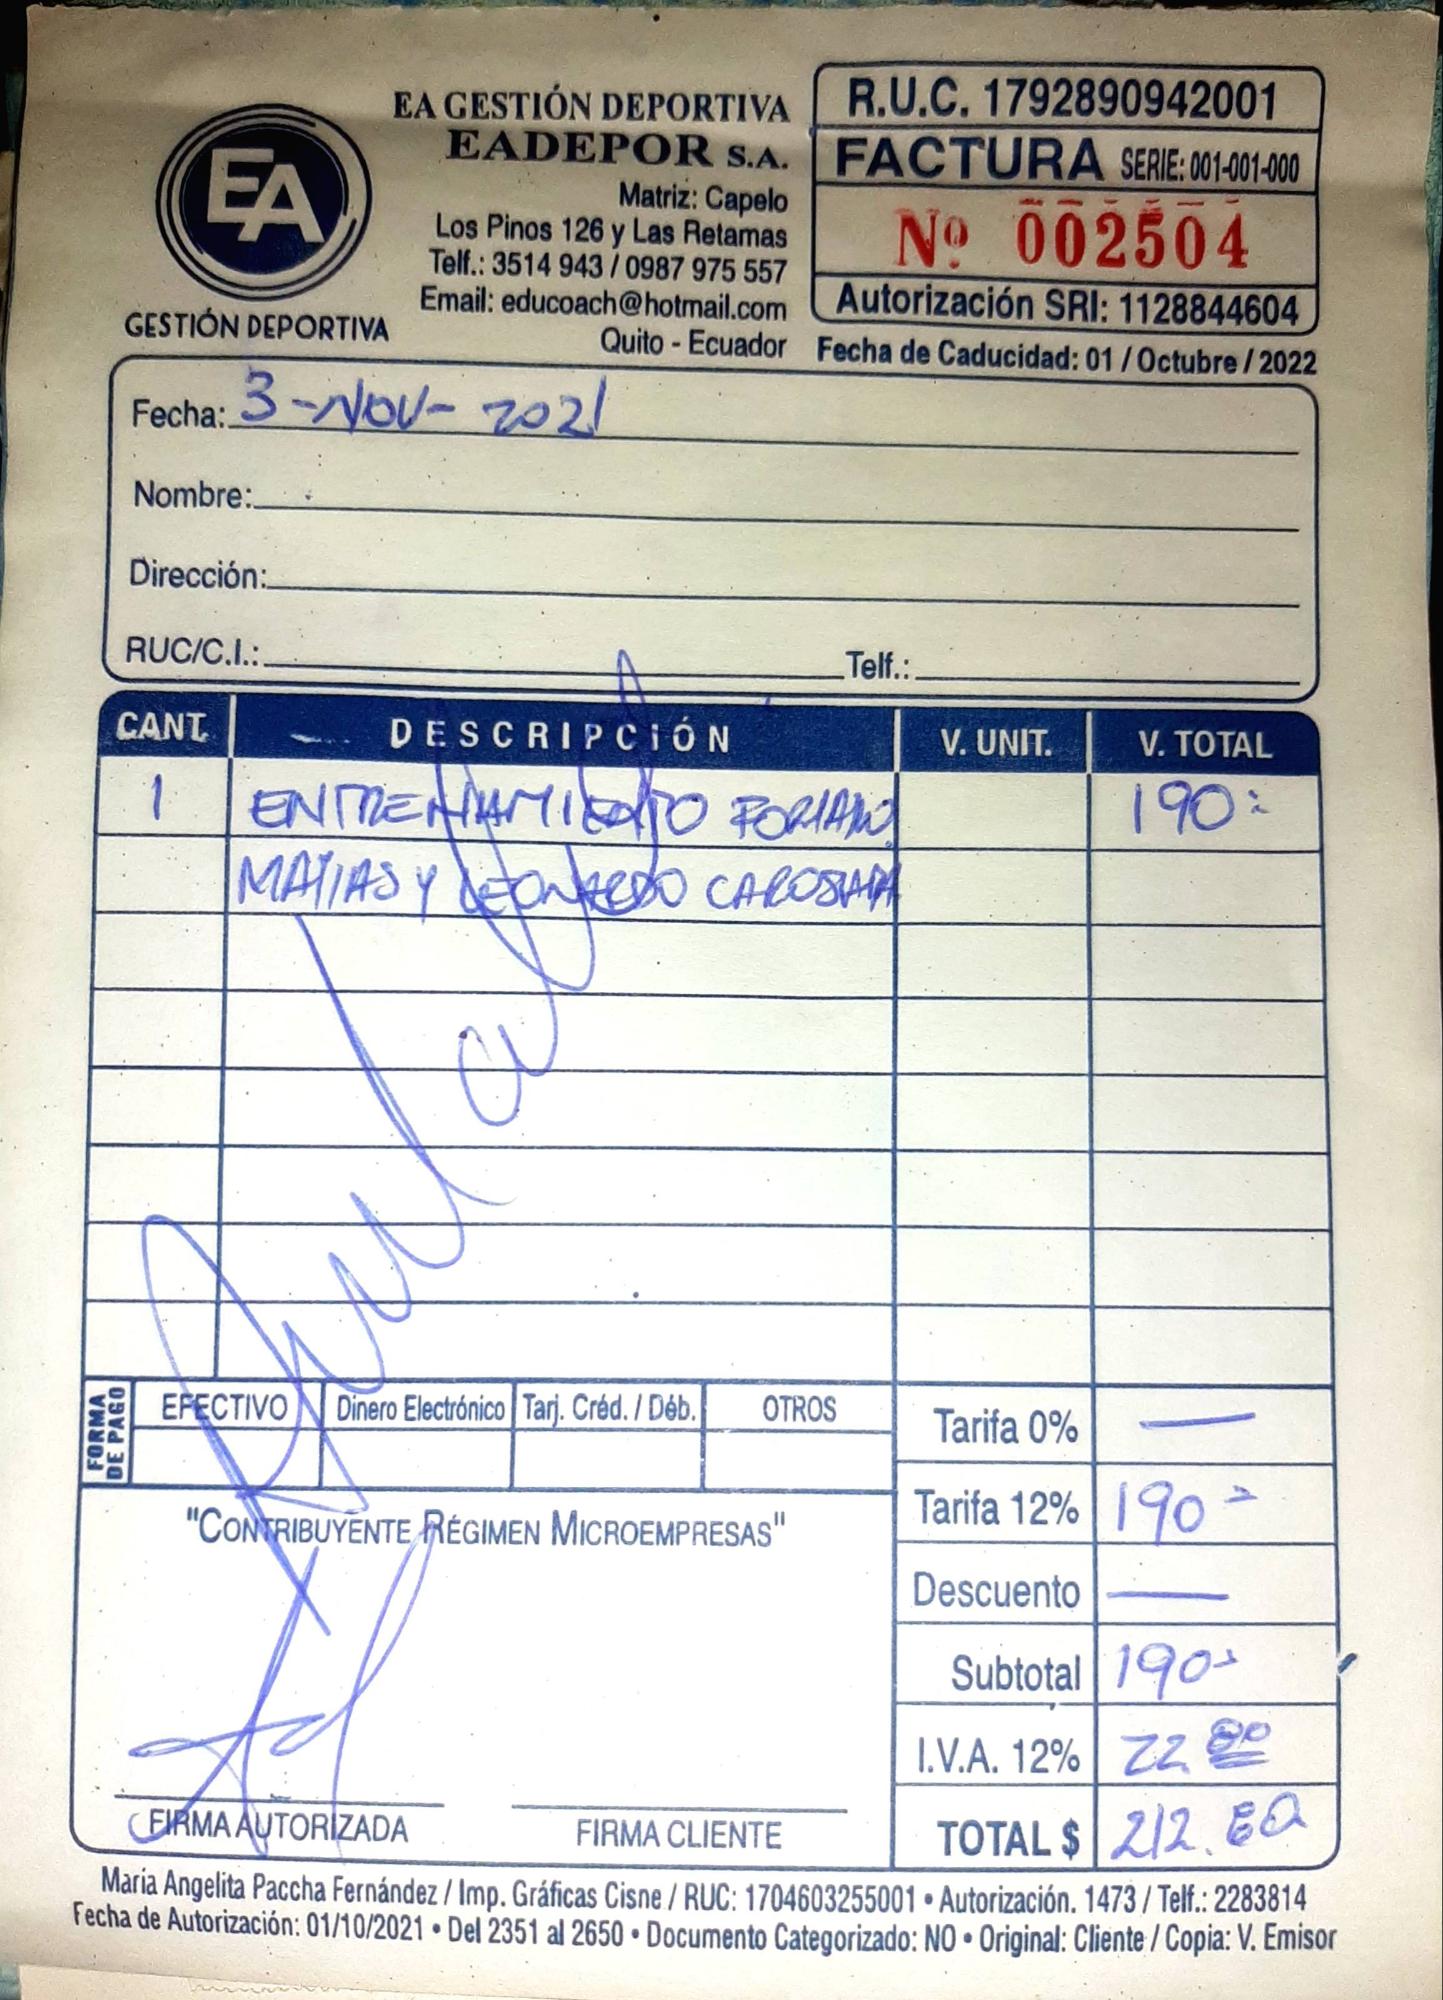 EA
GESTIÓN DEPORTIVA
EA GESTIÓN DEPORTIVA
EADEPOR S.A.
Matriz: Capelo
Los Pinos 126 y Las Retamas
Telf.: 3514 943 / 0987 975 557
Email: educoach@hotmail.com
Quito - Ecuador
R.U.C. 1792890942001
FACTURA SERIE: 001-001-000
Nº 002504
Autorización SRI: 1128844604
Fecha de Caducidad: 01 / Octubre / 2022
Fecha: 3-NOV-2021
Nombre:
Dirección:
RUC/C.I.: Telf.:
CANT. DESCRIPCIÓN V. UNIT. V. TOTAL
1 ENTRENAMIENTO 190
MATIAS Y LEONARDO
FORMA DE PAGO
EFECTIVO Dinero Electrónico Tarj. Créd. / Déb. OTROS
Tarifa 0% —
Tarifa 12% 190-
Descuento —
Subtotal 190-
I.V.A. 12% 22.80
TOTAL $ 212.80
"CONTRIBUYENTE RÉGIMEN MICROEMPRESAS"
FIRMA AUTORIZADA FIRMA CLIENTE
María Angelita Paccha Fernández / Imp. Gráficas Cisne / RUC: 1704603255001 • Autorización. 1473 / Telf.: 2283814
Fecha de Autorización: 01/10/2021 • Del 2351 al 2650 • Documento Categorizado: NO • Original: Cliente / Copia: V. Emisor